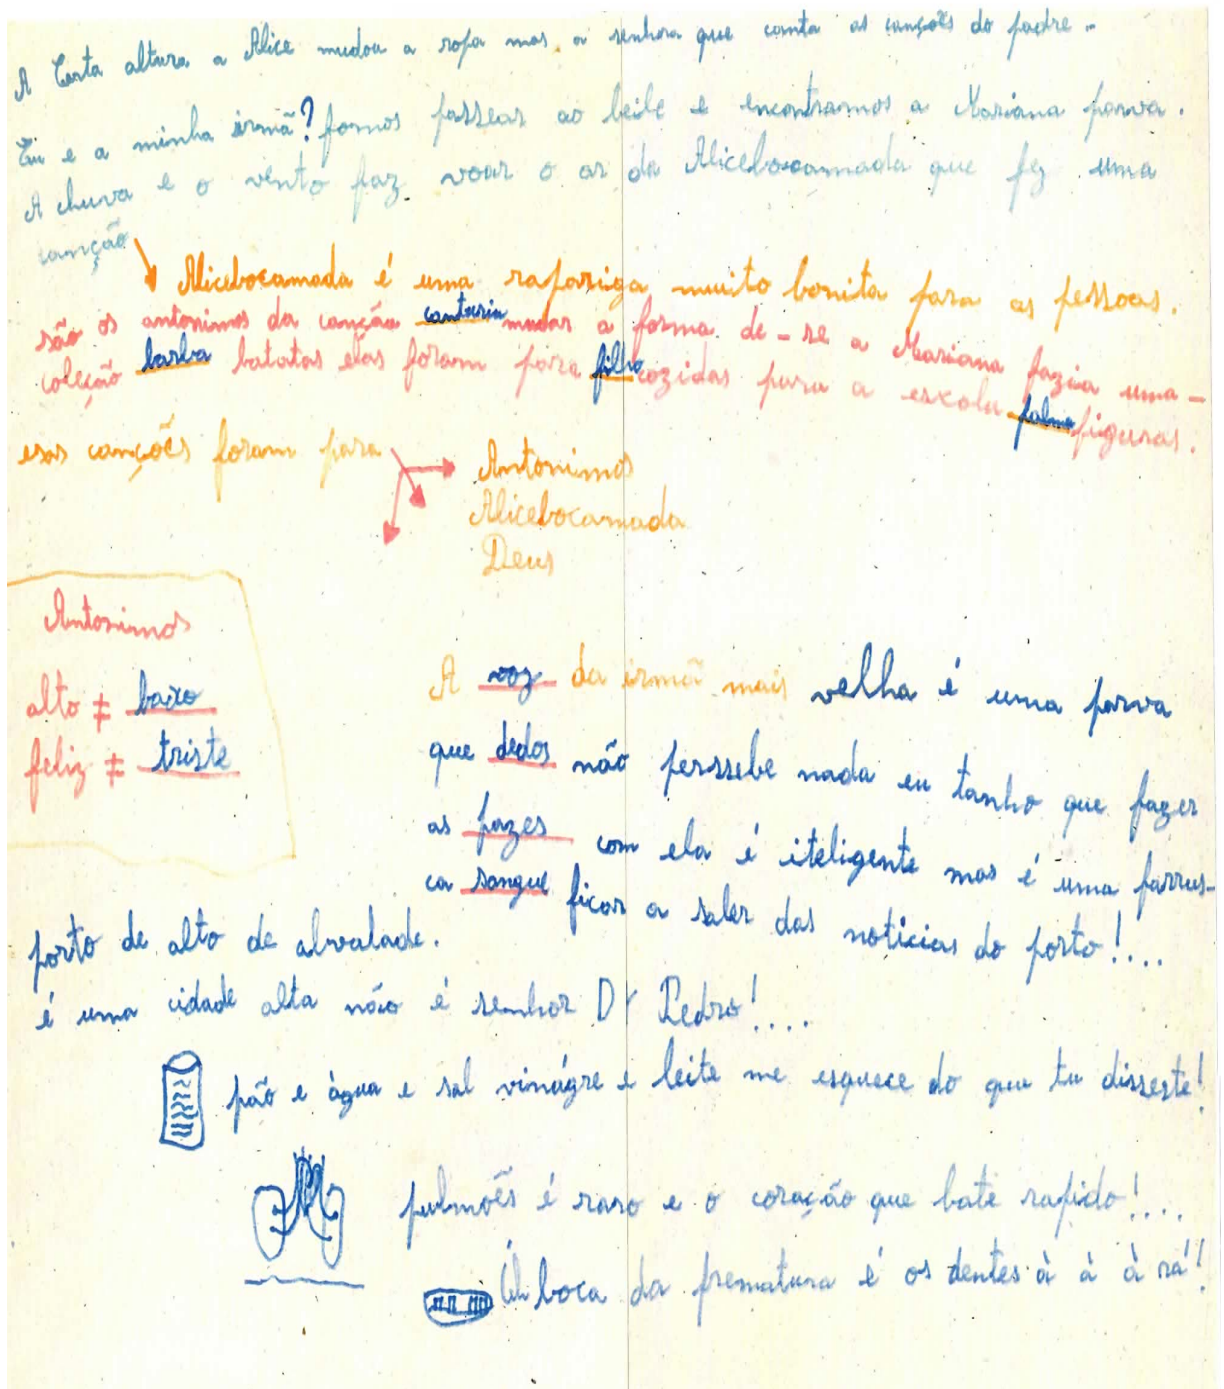 A Certa altura a Alice mudou a ropa mas a senhora que conta as canções do padre.
Eu e a minha irmã? fomos passear ao beile e encontramos a Mariana parva.
A chuva e o vento faz voar o ar da Alicebocamada que fez uma
canção
Alicebocamada é uma rapariga muito bonita para as pessoas.
são os antonimos da canção cantoria mudar a forma de-se a Mariana fazia uma-
coleção barba batatas elas foram para filho cozidas para a escola palma figuras.
esas canções foram para
Antonimos
Alicebocamada
Deus
Antonimos
alto ≠ baixo
feliz ≠ triste
A voz da irmã mais velha é uma parva
que dedos não perssebe nada eu tanho que fazer
as fazes com ela é iteligente mas é uma farrus-
ca sangue ficar a saber das noticias do porto!....
porto de alto de alvalade.
é uma cidade alta não é senhor D Pedro!....
pão e àgua e sal vinágre e leite me esquece do que tu disseste!
pulmões é raro e o coração que bate rapido!....
boca da prematura é os dentes à à à rá!